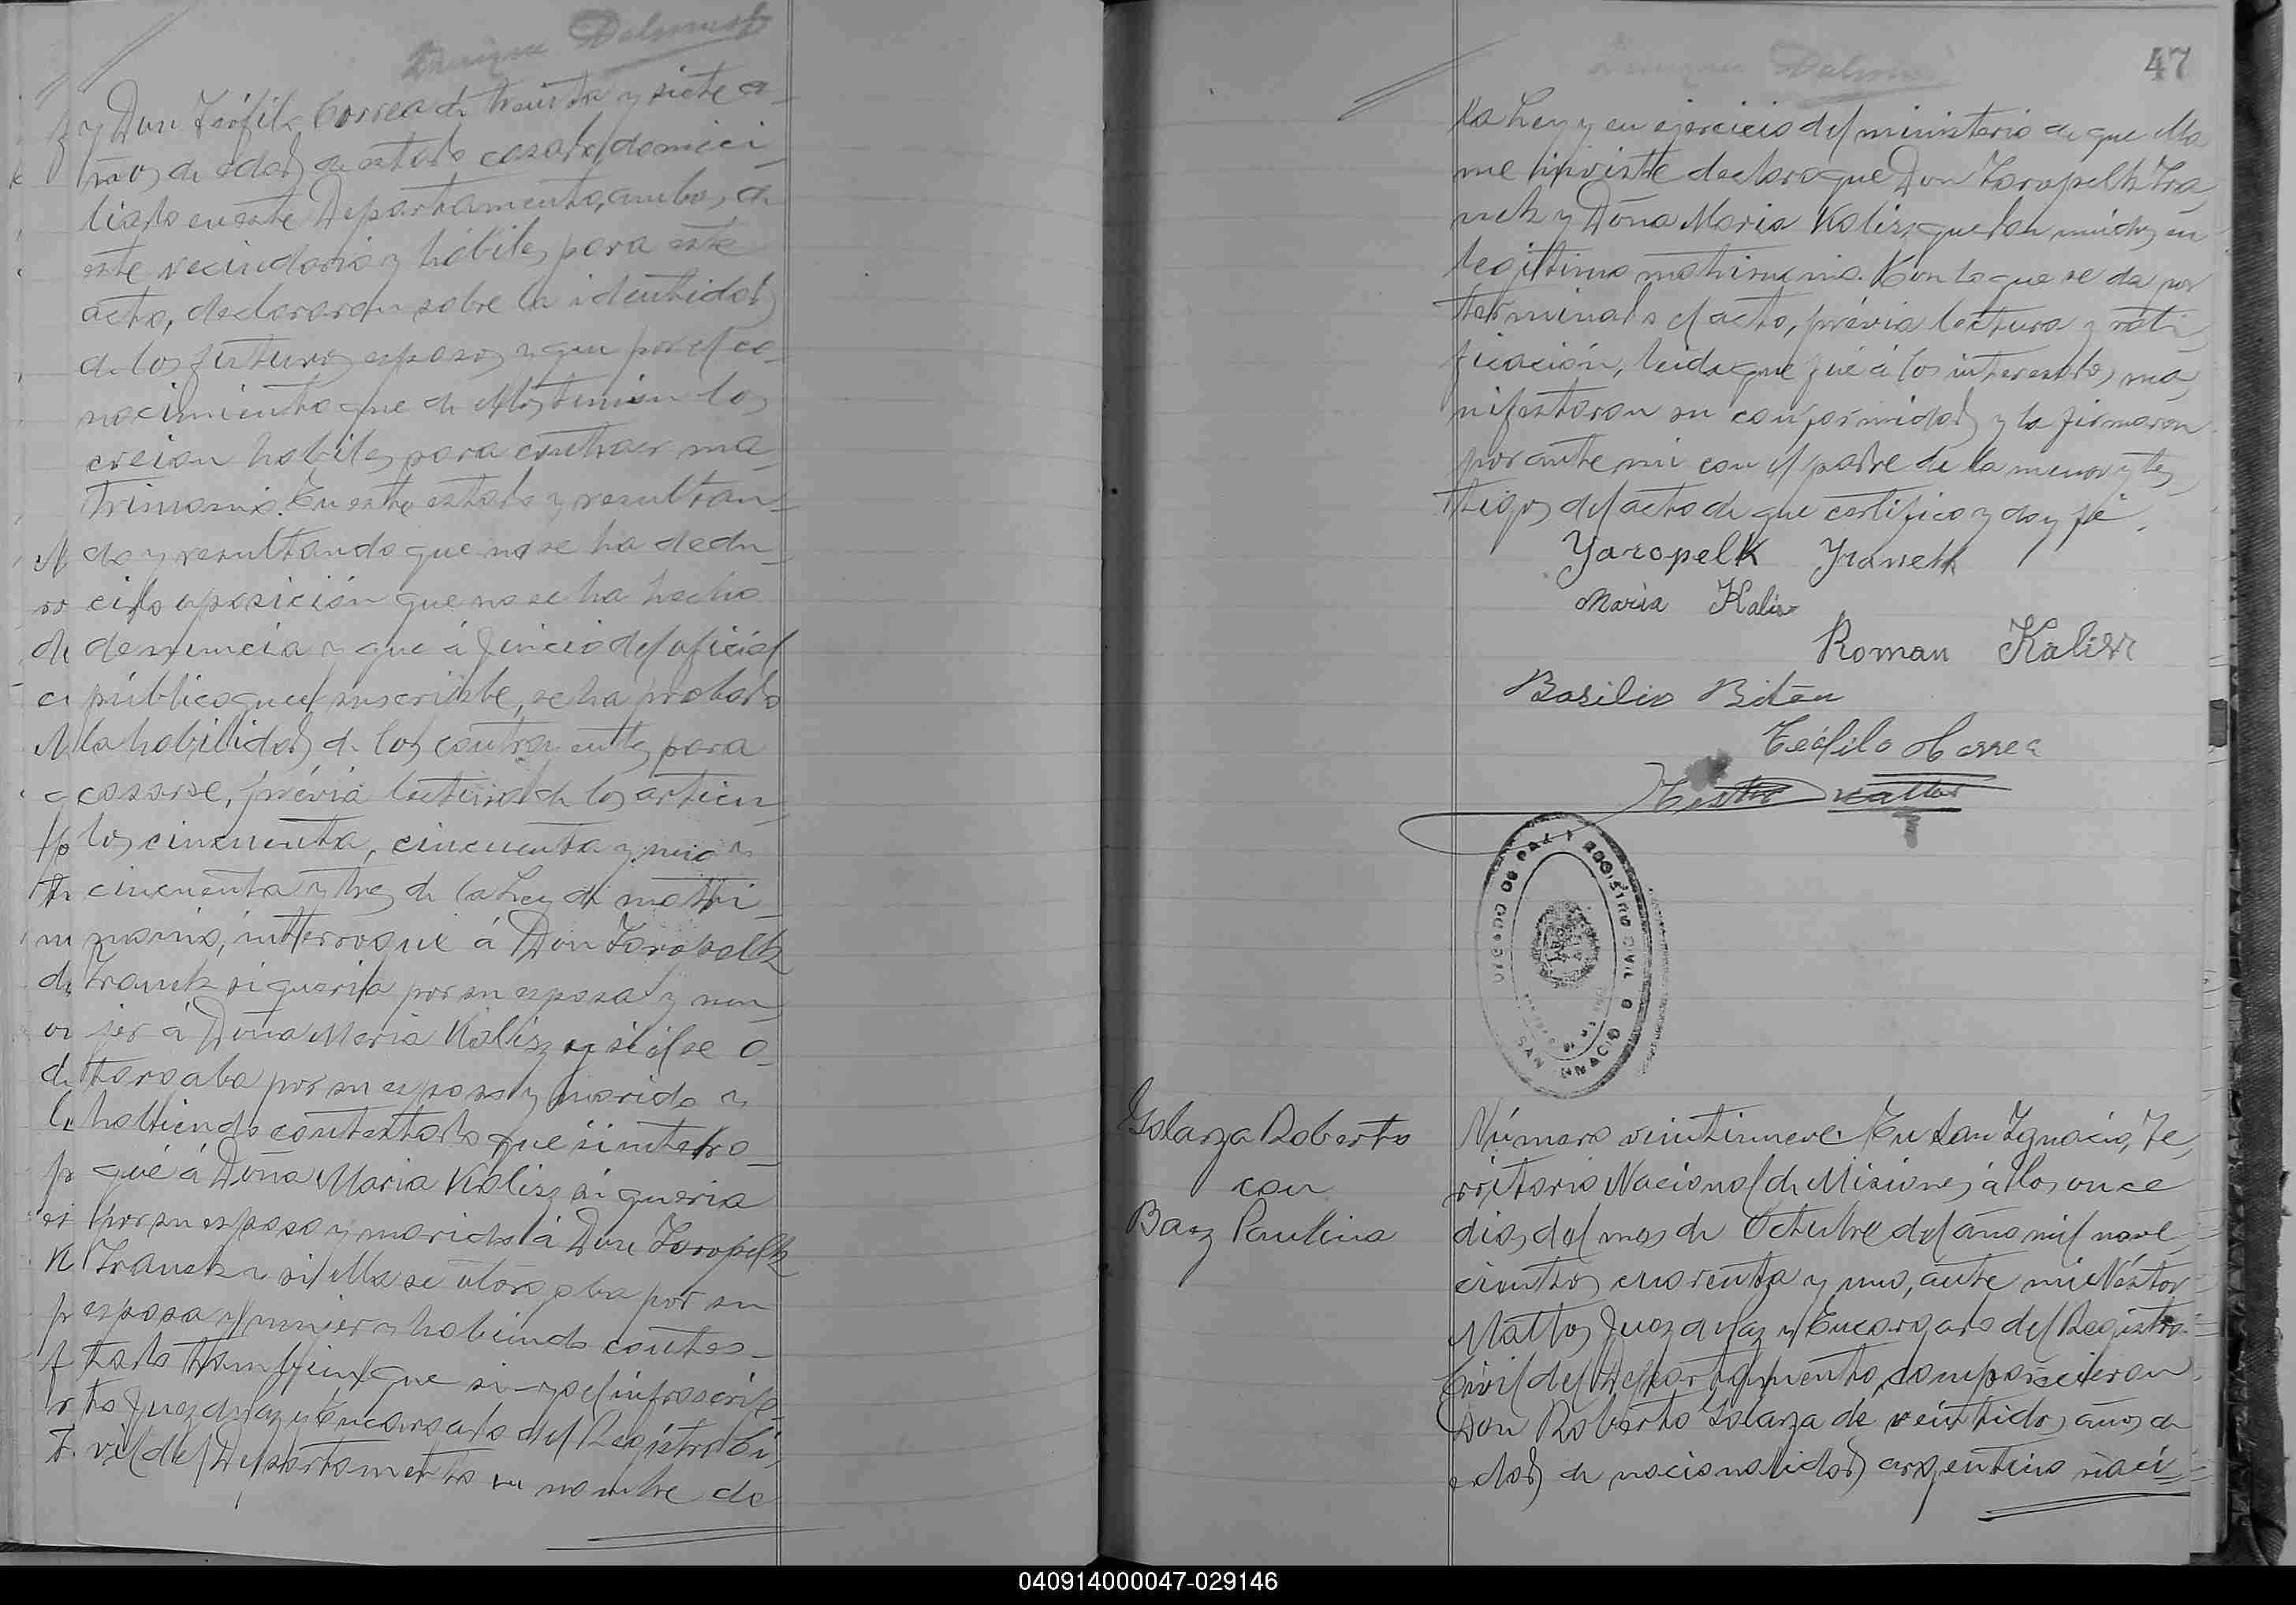 y Don Teófilo Correa de treinta y siete a-
ños de edad de estado casado domici-
liado en este Departamento, ambos de
este vecindario y hábiles para este
acto, declararon sobre la identidad
de los futuros esposos y que por el co-
nocimiento que de ellos tenian los
creian habiles para contraer ma-
trimonio. En este estado y resultan-
do y resultando que no se ha dedu-
cido oposición que no se ha hecho
denuncia y que á juicio del oficial
público que suscribe, se ha probado
la habilidad de los contrayentes para
casarse, prévia lectura de los articu-
los cincuenta, cincuenta y uno y
cincuenta y tres de la Ley de matri-
monio, interrogué á Don Jaropelk
Iranek si queria por su esposa y mu-
jer á Doña Maria Kalisz y si él se o-
torgaba por su esposo y marido y
habiendo contestado que si interro-
gué á Doña Maria Kalisz si queria
por su esposo y marido á Don Jaropelk
Iranek y si ella se otorgaba por su
esposa y mujer y habiendo contes-
tado tambien que si yo el infrascrip-
to Juez de Paz y Encargado del Registro Ci-
vil del Departamento en nombre de
47
la Ley y en ejercicio del ministerio de que ella
me inviste declaro que Don Jaropelk Ira-
nek y Doña Maria Kalisz quedan unidos en
legitimo matrimonio. Con lo que se da por
terminado el acto, prévia lectura y rati-
ficación, leida que fué á los interesados, ma-
nifestaron su conformidad y la firmaron
por ante mi con el padre de la menor y tes-
tigos del acto de que certifico y doy fé.
Yaropelk Iranek
Maria Kalisz
Roman Kalisz
Basilio
Teófilo Correa
JUZGADO DE PAZ Y REGISTRO CIVIL
SAN IGNACIO
Golarza Roberto
con
Baez Paulina
Número veintinueve. En San Ignacio, Te-
rritorio Nacional de Misiones á los once
dias del mes de Octubre del año mil nove-
cientos cuarenta y uno, ante mi Néstor
Mattos Juez de Paz y Encargado del Registro
Civil del Departamento, comparecieron
Don Roberto Golarza de veintidos años de
edad de nacionalidad argentino naci-
040914000047-029146